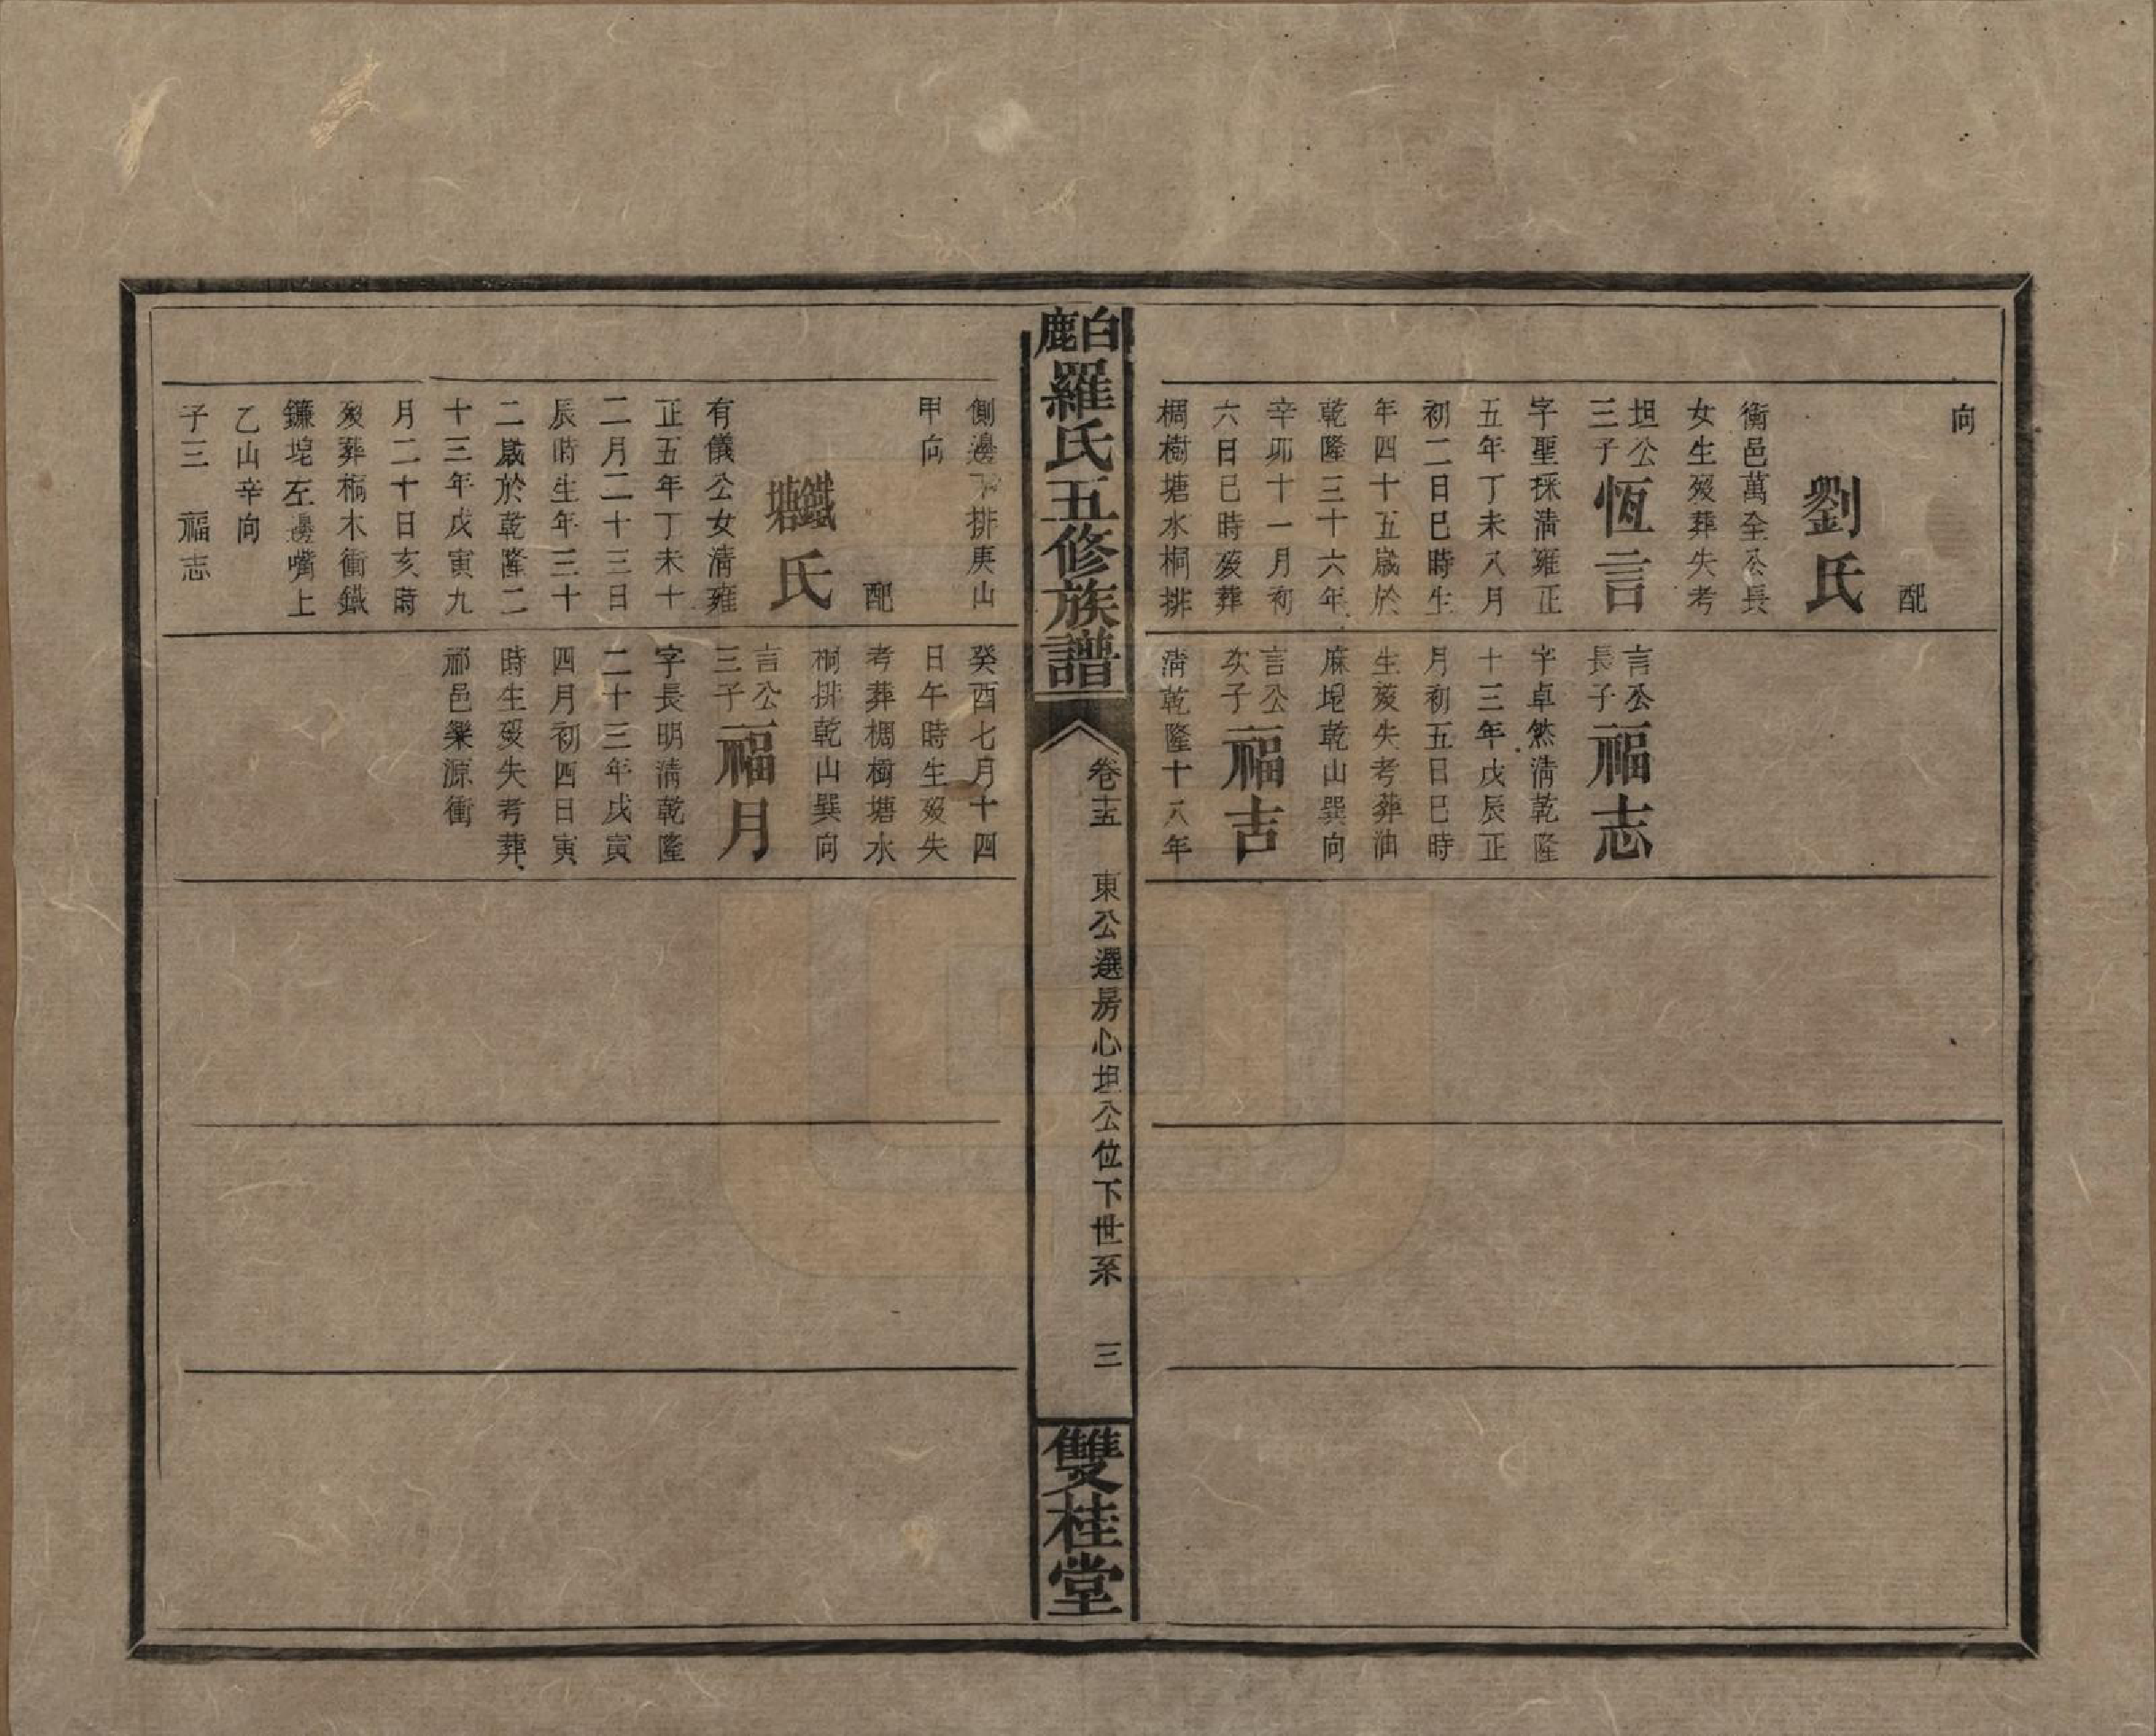 向
配
劉氏
衡邑萬全公長
女生歿葬失考
坦公
三子
恆言
字聖採清雍正
五年丁未八月
初二日巳時生
年四十五歲於
乾隆三十六年
辛卯十一月初
六日巳時歿葬
椆樹塘水桐排
言公
長子
福志
字卓然清乾隆
十三年戊辰正
月初五日巳時
生歿失考葬油
麻坭乾山巽向
言公
次子
福吉
清乾隆十八年
白鹿
羅氏五修族譜
卷十五
東公選房心坦公位下世系
三
雙桂堂
側邊下排庚山
甲向
配
鐵塘
氏
有儀公女清雍
正五年丁未十
二月二十三日
辰時生年三十
二歲於乾隆二
十三年戊寅九
月二十日亥時
歿葬楠木衝鐵
鐮坭左邊嘴上
乙山辛向
子三 福志
癸酉七月十四
日午時生歿失
考葬椆樹塘水
桐排乾山巽向
言公
三子
福月
字長明清乾隆
二十三年戊寅
四月初四日寅
時生歿失考葬
祁邑樂源衝